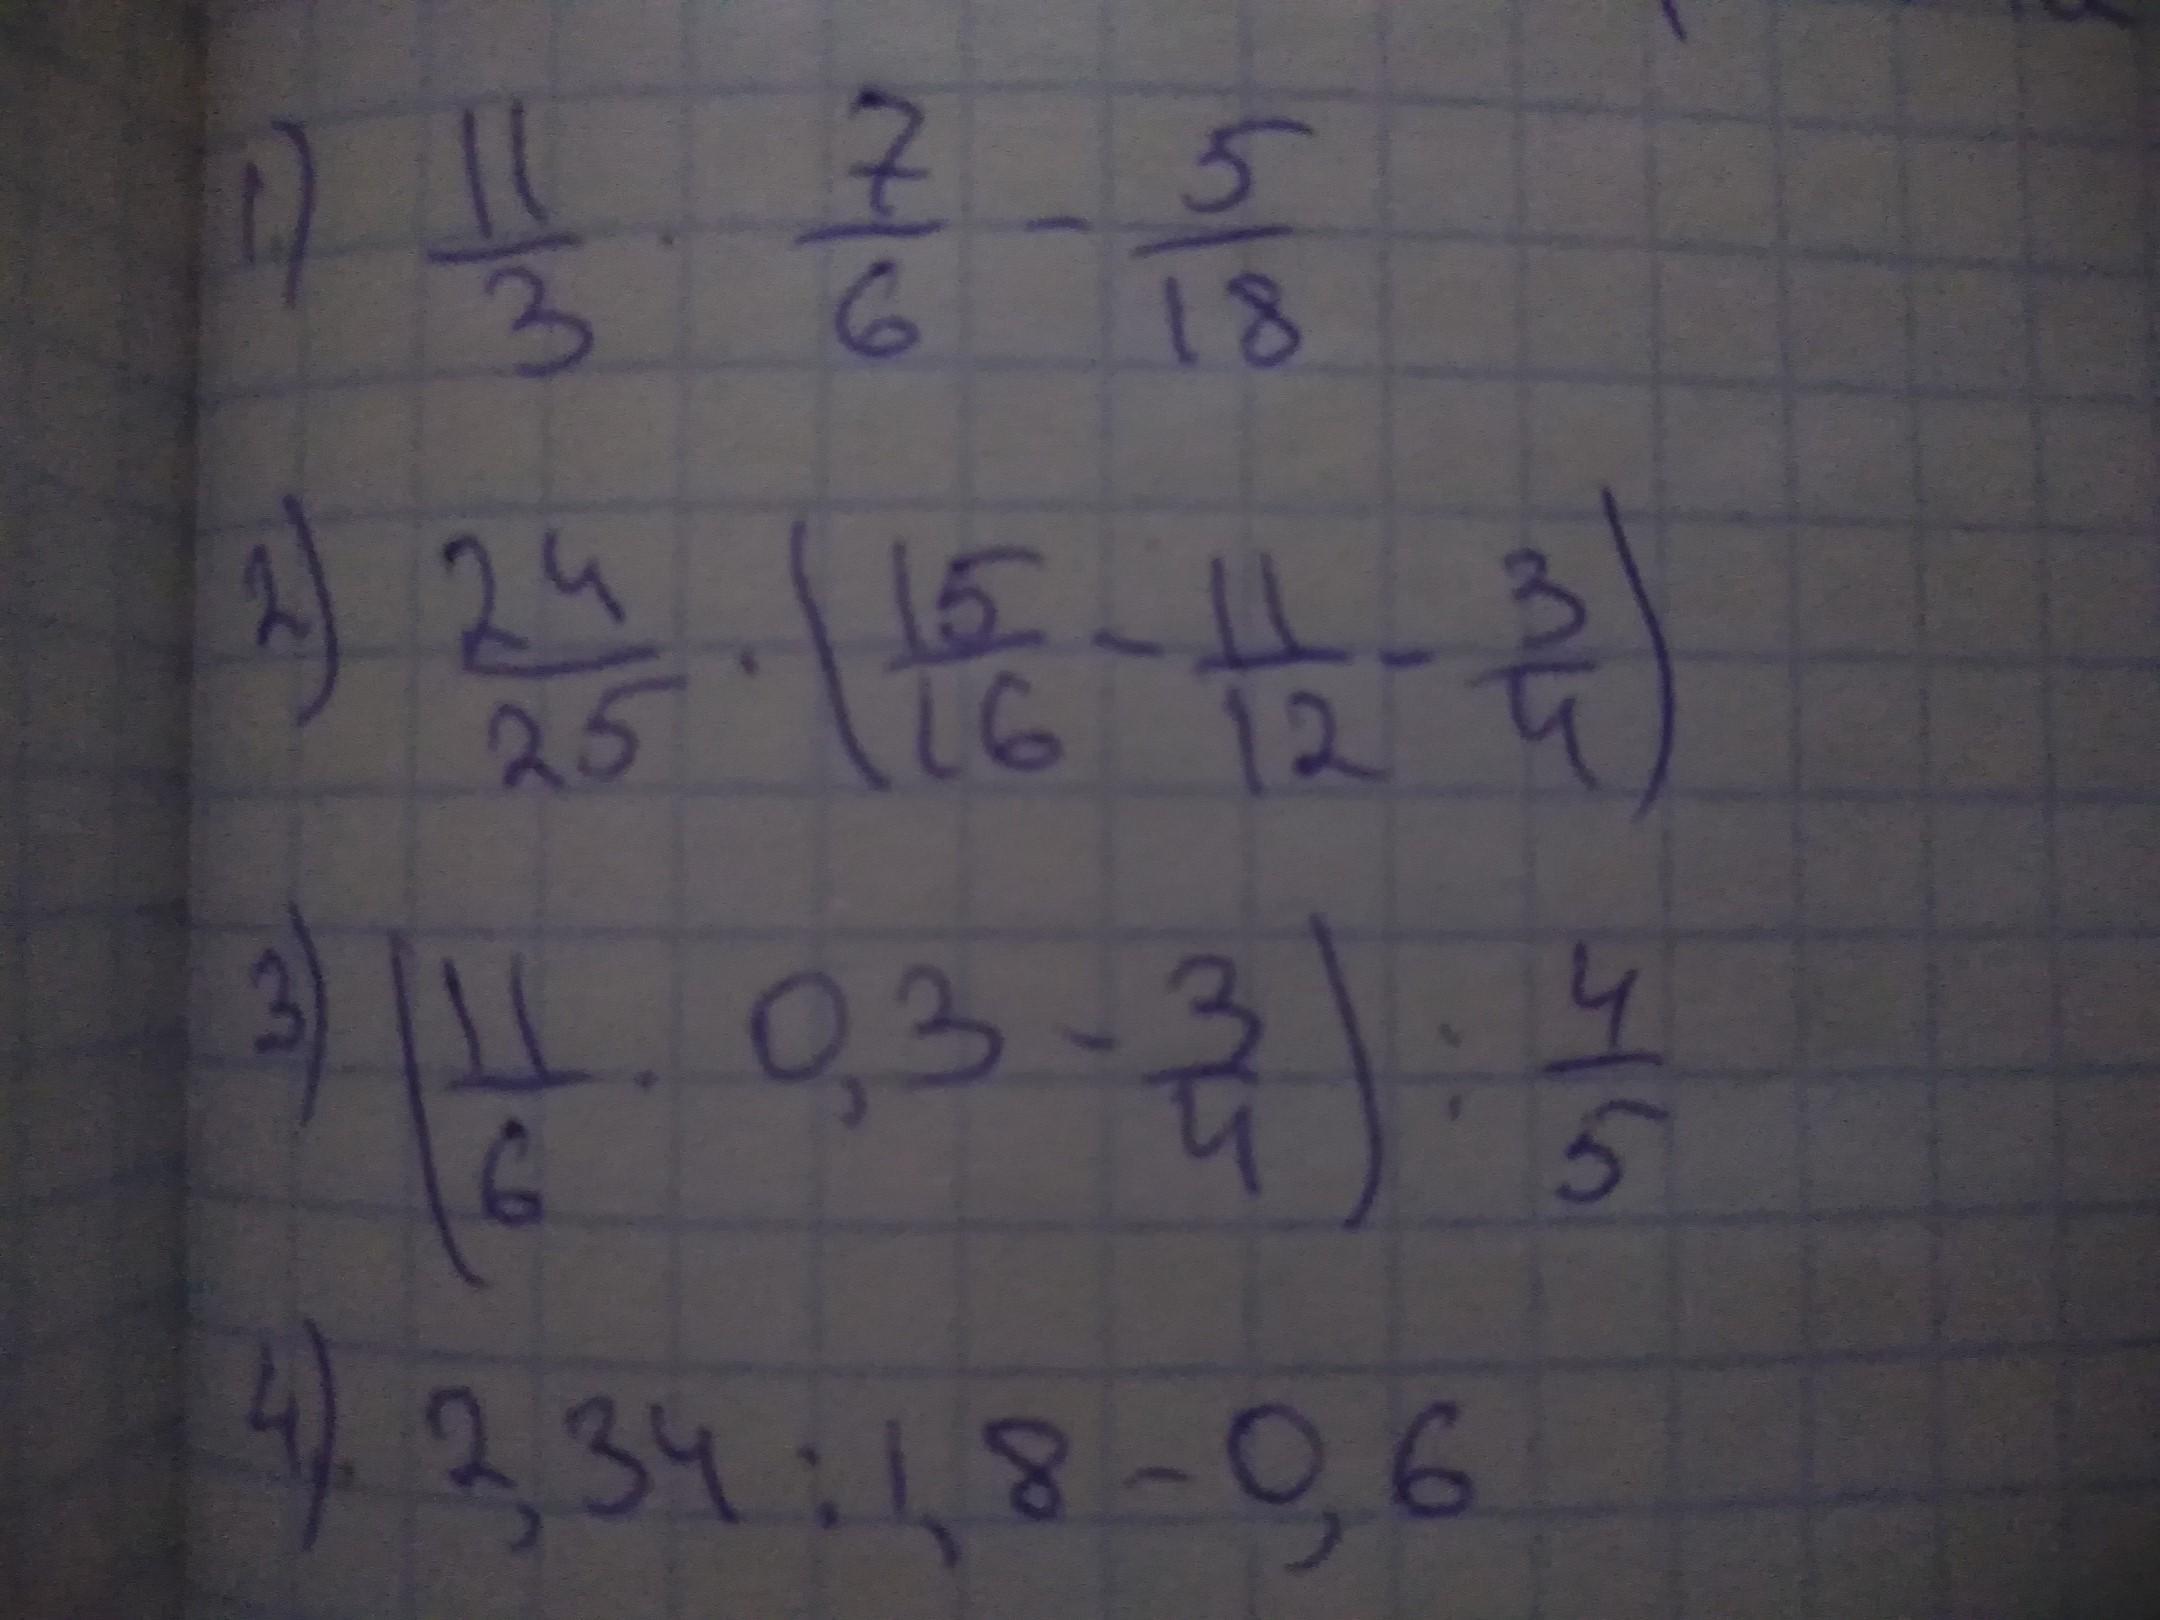 1) 11/3 · 7/6 - 5/18
2) 24/25 · (15/16 - 11/12 - 3/4)
3) (11/6 · 0,3 - 3/4) : 4/5
4) 2,34 : 1,8 - 0,6